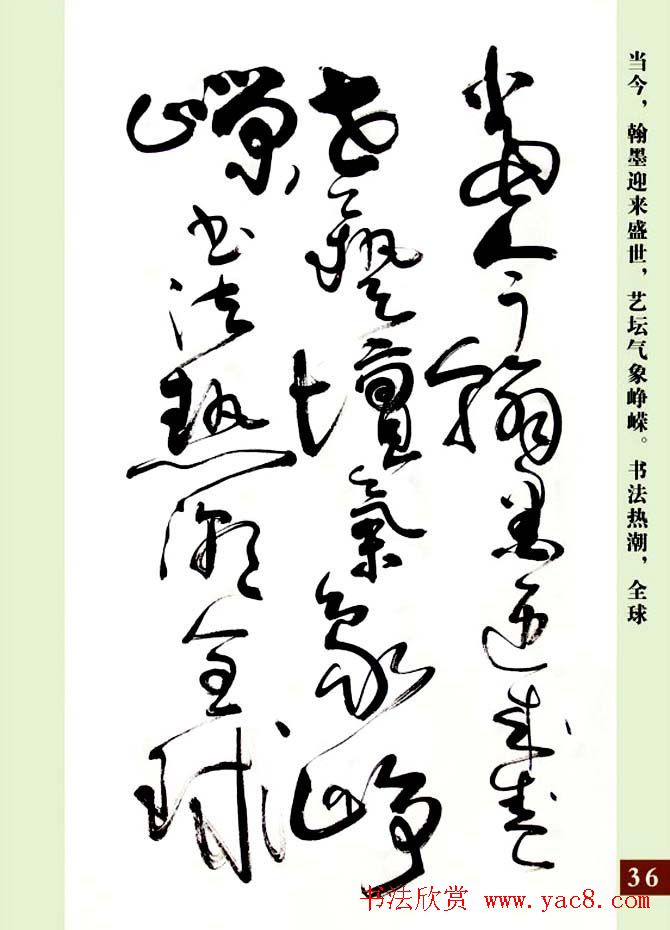 當今翰墨迎来盛
世藝壇氣象峥
嵘书法热潮全球
当今，翰墨迎来盛世，艺坛气象峥嵘。书法热潮，全球
36
书法欣赏 www.yac8.com